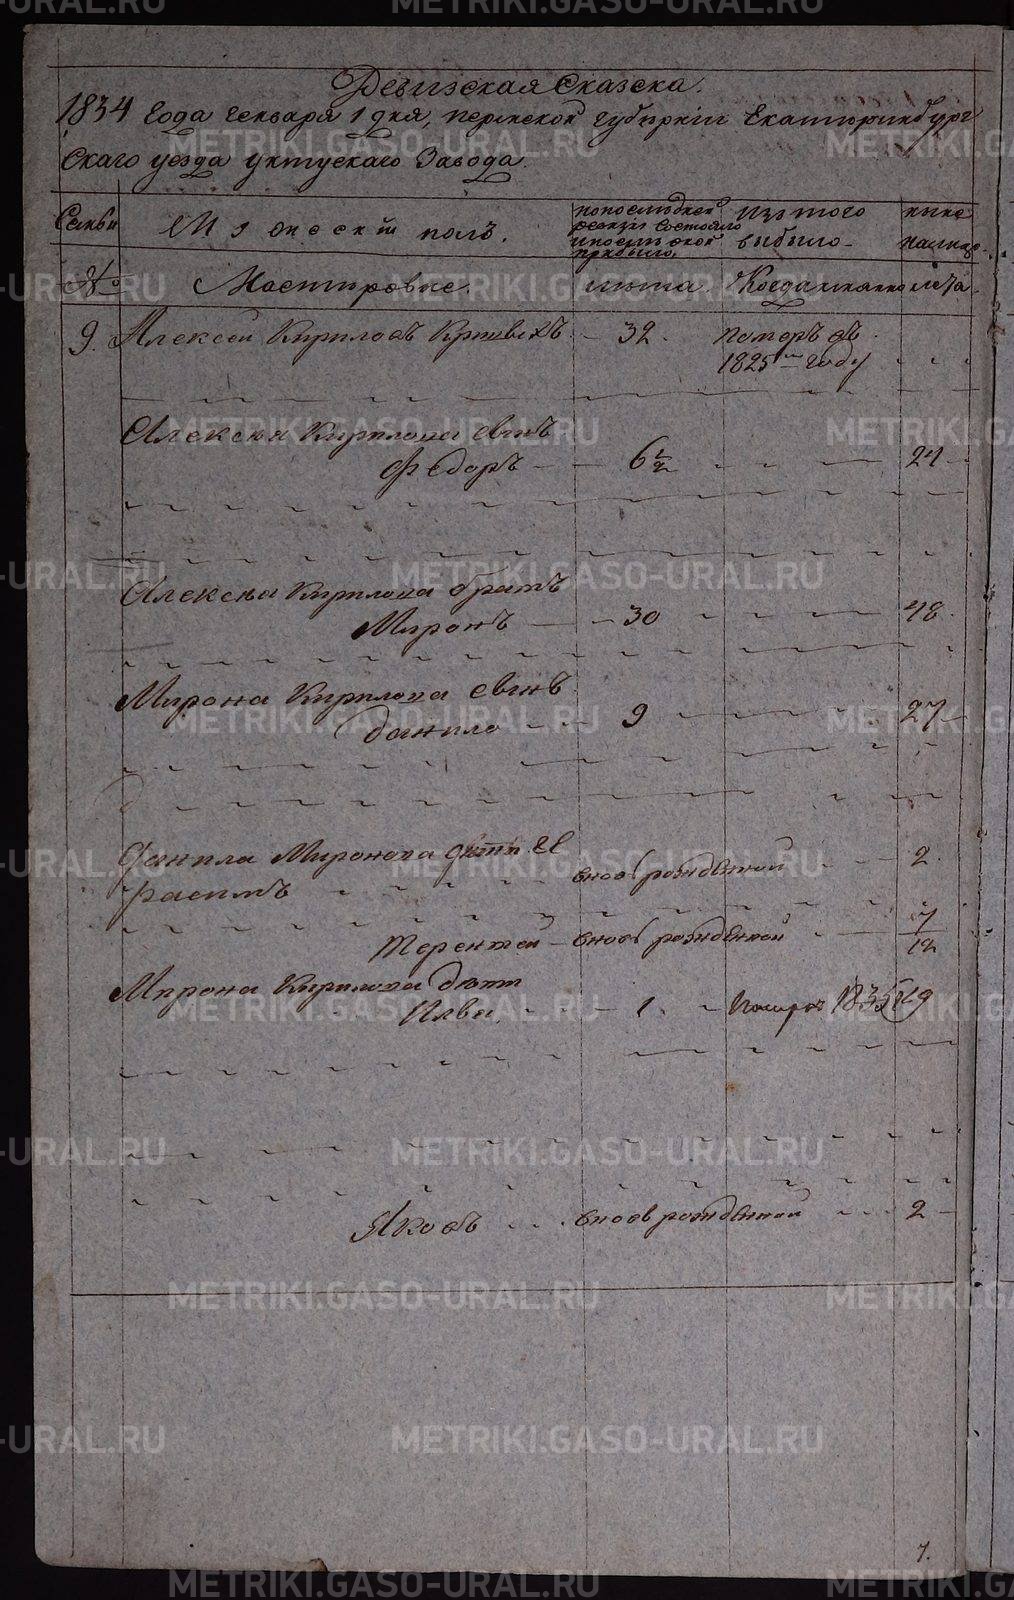 METRIKI.GASO-URAL.RU
Ревизская Сказска.
1834 Года Генваря 1 дня, пермской губерніи Екатеринбург
скаго уезда уктускаго Завода.
Семьи
Мужескій полъ.
попоследней ревизіи состояло и после оной прибыло,
Изътого выбыло
ныне налицо
№
Мастеровые.
лета
Когда имянно
лета
9. Алексей Кириловъ 39. померъ въ
1825м году
Алексея Кирилова сынъ
Федоръ 6½ 24
Алексея Кирилова братъ
Миронъ 30 48
Мирона Кирилова сынъ
Данило 9 27
Данила Миронова дети Ге
расимъ вновь рожденной 2.
Терентей вновь рожденной 7/12
Мирона Кирилова дети
Илья 1. 19
Яковъ вновь рожденной 2
7.